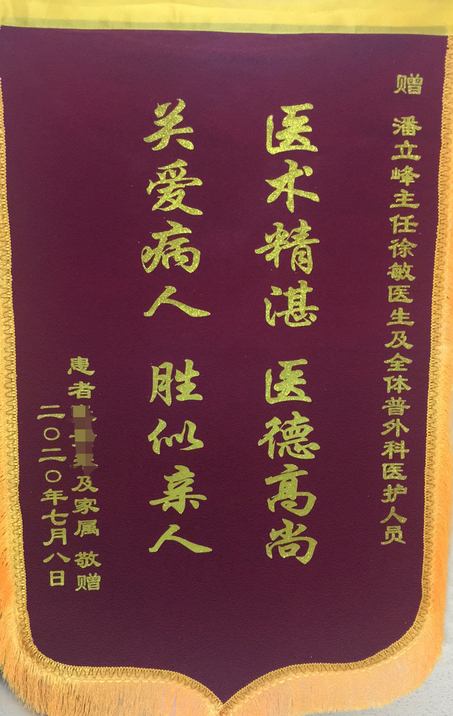 赠 潘立峰主任徐敏医生及全体普外科医护人员
医术精湛 医德高尚
关爱病人 胜似亲人
患者 及家属 敬赠
二〇二〇年七月八日